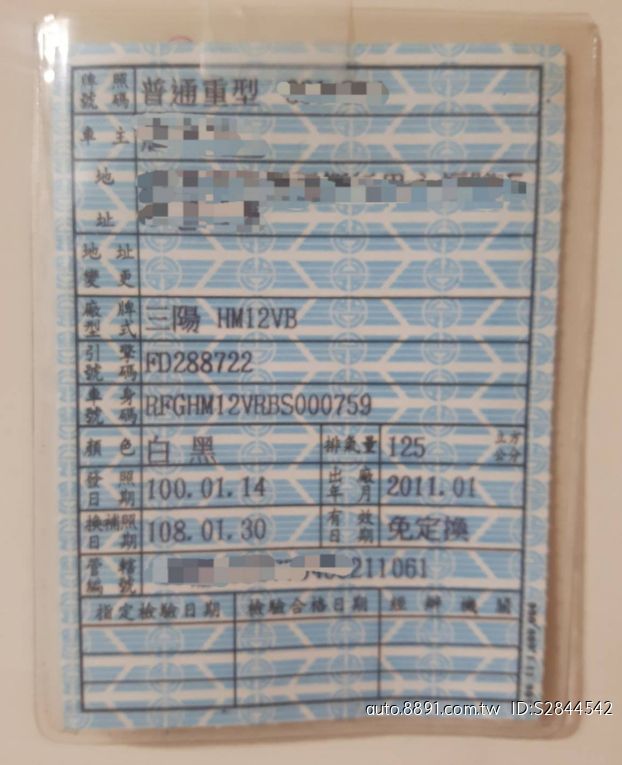 牌照號碼 普通重型
車主
地址
地址變更
廠牌型式 三陽 HM12VB
引擎號碼 FD288722
車身號碼 RFGHM12VRBS000759
顏色 白 黑 排氣量 125 立方公分
發照日期 100.01.14 出廠年月 2011.01
換補照日期 108.01.30 有效日期 免定換
管轄編號 211061
指定檢驗日期 檢驗合格日期 經辦機關
auto.8891.com.tw ID:S2844542